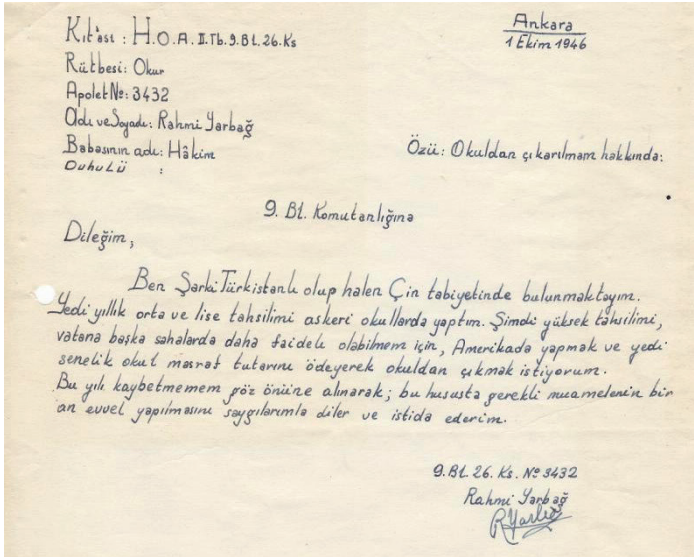 Kıt'ası : H.O.A.II.Tb.9.Bl.26.Ks
Ankara
1 Ekim 1946
Rütbesi: Okur
Apolet №: 3432
Adı ve Soyadı: Rahmi Yarbağ
Babasının adı: Hâkim
Duhulü :
Özü: Okuldan çıkarılmam hakkında:
9. Bl. Komutanlığına
Dileğim,
Ben Şarki Türkistanlı olup halen Çin tabiyetinde bulunmaktayım.
Yedi yıllık orta ve lise tahsilimi askeri okullarda yaptım. Şimdi yüksek tahsilimi,
vatana başka sahalarda daha faideli olabilmem için, Amerikada yapmak ve yedi
senelik okul masraf tutarını ödeyerek okuldan çıkmak istiyorum.
Bu yılı kaybetmemem göz önüne alınarak; bu hususta gerekli muamelenin bir
an evvel yapılmasını saygılarımla diler ve istida ederim.
9.Bl. 26. Ks. № 3432
Rahmi Yarbağ
RYarbağ